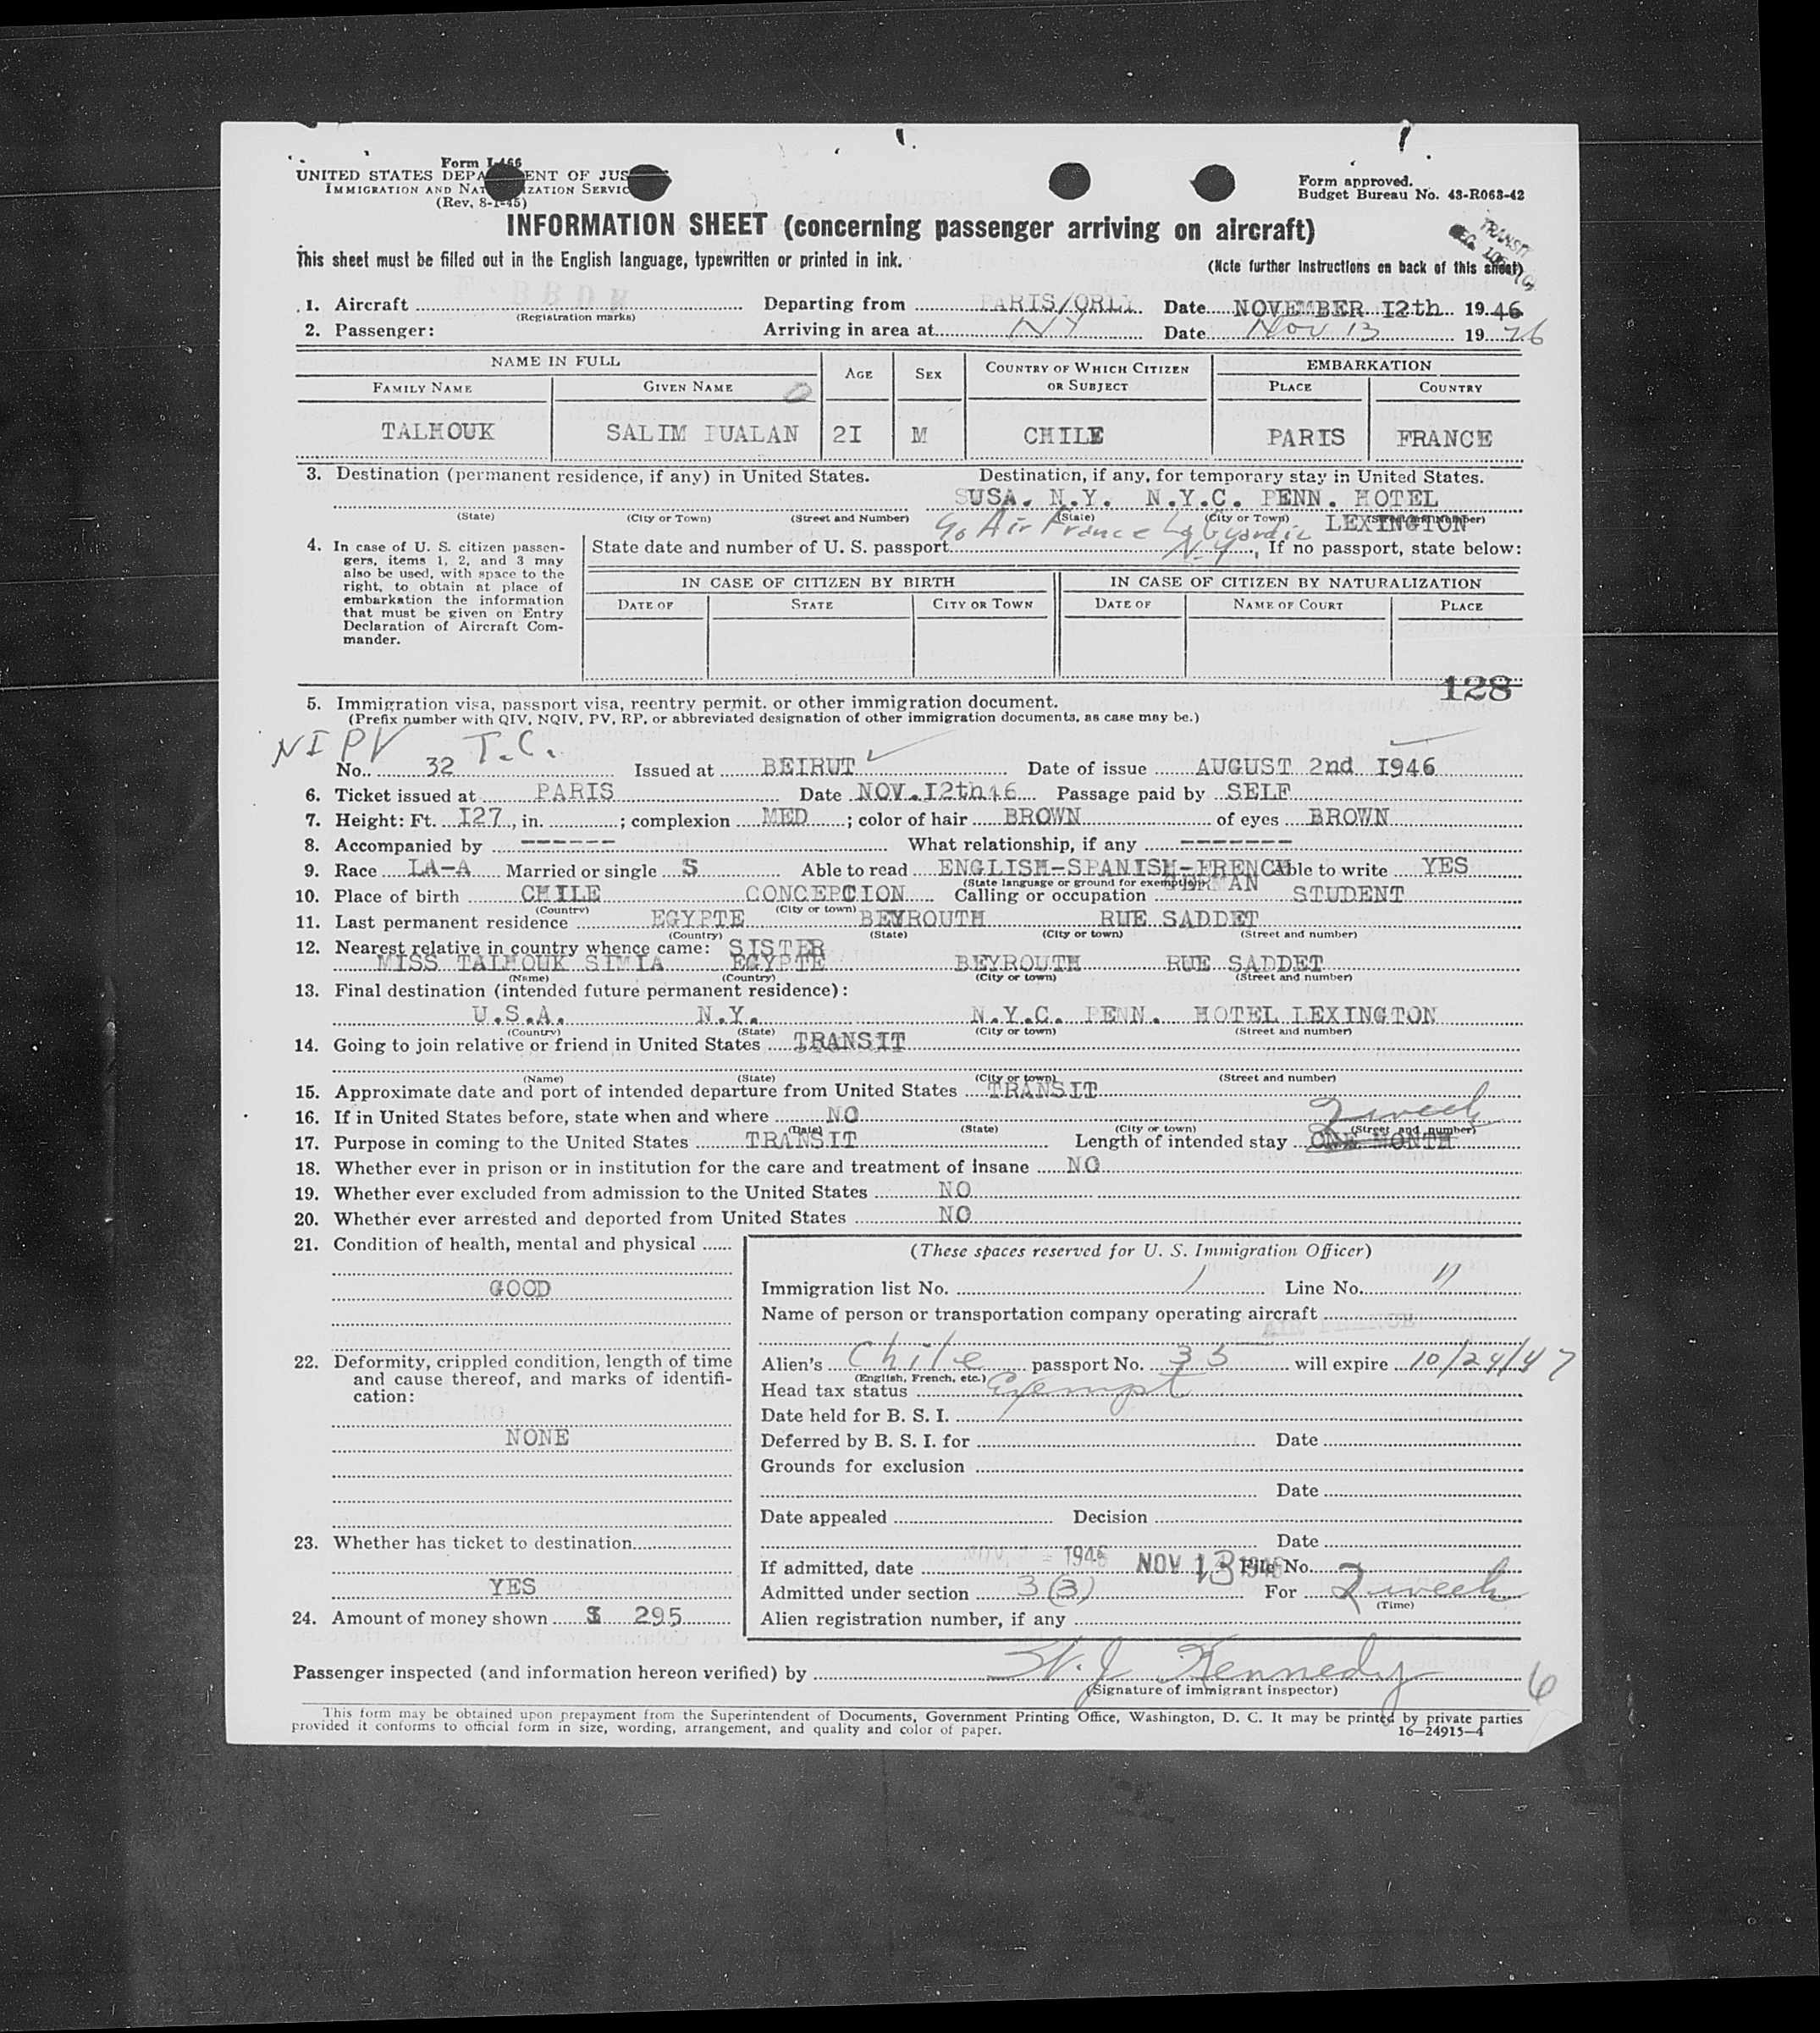 Form I-466
UNITED STATES DEPA ENT OF JUS
IMMIGRATION AND NAT IZATION SERVIC
(Rev. 8-1-45)
Form approved.
Budget Bureau No. 43-R063-42
INFORMATION SHEET (concerning passenger arriving on aircraft)
TRANSIT
This sheet must be filled out in the English language, typewritten or printed in ink.
(Note further instructions on back of this sheet)
1. Aircraft F-BBDM Departing from PARIS/ORLY Date NOVEMBER I2th 1946
(Registration marks)
2. Passenger: Arriving in area at NY Date Nov 13 1946
NAME IN FULL AGE SEX COUNTRY OF WHICH CITIZEN OR SUBJECT EMBARKATION
FAMILY NAME GIVEN NAME PLACE COUNTRY
TALHOUK SALIM IUALAN 2I M CHILE PARIS FRANCE
3. Destination (permanent residence, if any) in United States. Destination, if any, for temporary stay in United States.
USA. N.Y. N.Y.C. PENN. HOTEL
(State) (City or Town) (Street and Number) (State) (City or Town) (Street and Number)
LEXINGTON
Air France LaGuardia
N.Y.
4. In case of U. S. citizen passen-
gers, items 1, 2, and 3 may
also be used, with space to the
right, to obtain at place of
embarkation the information
that must be given on Entry
Declaration of Aircraft Com-
mander.
State date and number of U. S. passport , If no passport, state below:
IN CASE OF CITIZEN BY BIRTH IN CASE OF CITIZEN BY NATURALIZATION
DATE OF STATE CITY OR TOWN DATE OF NAME OF COURT PLACE
128
5. Immigration visa, passport visa, reentry permit, or other immigration document.
(Prefix number with QIV, NQIV, PV, RP, or abbreviated designation of other immigration documents, as case may be.)
NIPV T.C.
No. 32 Issued at BEIRUT Date of issue AUGUST 2nd I946
6. Ticket issued at PARIS Date NOV.I2th46 Passage paid by SELF
7. Height: Ft. I27, in. ; complexion MED ; color of hair BROWN of eyes BROWN
8. Accompanied by ------ What relationship, if any -------
9. Race LA-A Married or single S Able to read ENGLISH-SPANISH-FRENCH Able to write YES
(State language or ground for exemption) GERMAN
10. Place of birth CHILE CONCEPCION Calling or occupation STUDENT
(Country) (City or town)
11. Last permanent residence EGYPTE BEYROUTH RUE SADDET
(Country) (State) (City or town) (Street and number)
12. Nearest relative in country whence came: SISTER
MISS TALHOUK SIMIA EGYPTE BEYROUTH RUE SADDET
(Name) (Country) (City or town) (Street and number)
13. Final destination (intended future permanent residence):
U.S.A. N.Y. N.Y.C. PENN. HOTEL LEXINGTON
(Country) (State) (City or town) (Street and number)
14. Going to join relative or friend in United States TRANSIT
(Name) (State) (City or town) (Street and number)
15. Approximate date and port of intended departure from United States TRANSIT
16. If in United States before, state when and where NO
(Date) (State) (City or town) (Street and number)
2 week
17. Purpose in coming to the United States TRANSIT Length of intended stay ONE MONTH
18. Whether ever in prison or in institution for the care and treatment of insane NO
19. Whether ever excluded from admission to the United States NO
20. Whether ever arrested and deported from United States NO
21. Condition of health, mental and physical
GOOD
22. Deformity, crippled condition, length of time
and cause thereof, and marks of identifi-
cation:
NONE
23. Whether has ticket to destination
YES
24. Amount of money shown $ 295
(These spaces reserved for U. S. Immigration Officer)
Immigration list No. 1 Line No. 11
Name of person or transportation company operating aircraft
Alien's Chile passport No. 35 will expire 10/24/47
(English, French, etc.)
Head tax status Exempt
Date held for B. S. I.
Deferred by B. S. I. for Date
Grounds for exclusion
Date
Date appealed Decision
Date
If admitted, date NOV 13 1946 File No.
Admitted under section 3(3) For 2 week
(Time)
Alien registration number, if any
Passenger inspected (and information hereon verified) by W. J. Kennedy
(Signature of immigrant inspector)
6
This form may be obtained upon prepayment from the Superintendent of Documents, Government Printing Office, Washington, D. C. It may be printed by private parties
provided it conforms to official form in size, wording, arrangement, and quality and color of paper.
16—24915-4